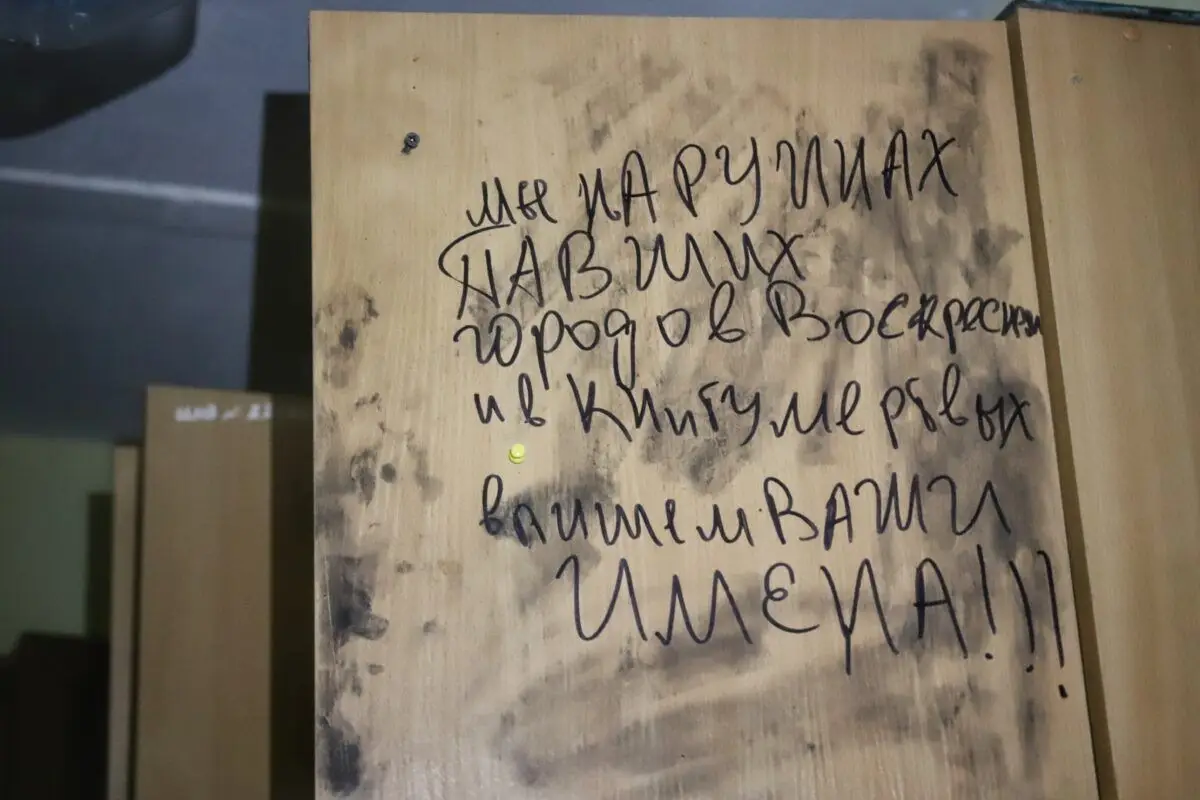 мы НА РУИНАХ
ПАВШИХ
городов Воскреснем
и в Книгу мертвых
впишем ВАШИ
ИМЕНА!!!